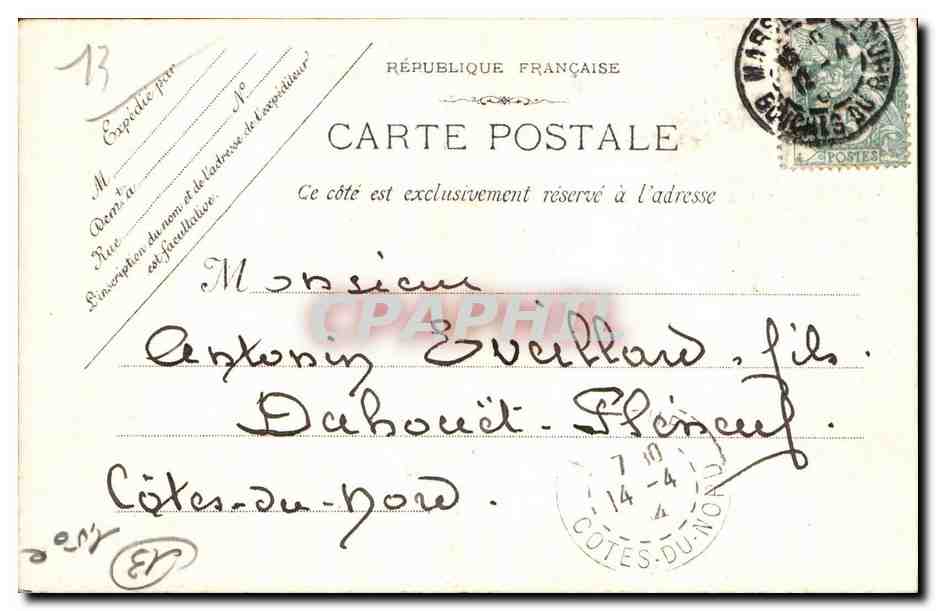 13
RÉPUBLIQUE FRANÇAISE
CARTE POSTALE
Ce côté est exclusivement réservé à l'adresse
Expédié par
M
Demt à
Rue N°
L'inscription du nom et de l'adresse de l'expéditeur
est facultative.
POSTES
Monsieur
CPAPHIL
Antonin Eveillard fils.
Dahouët-Pléneuf.
Côtes-du-Nord.
7 30
14 -4
4
CÔTES-DU-NORD
1,50 e
13